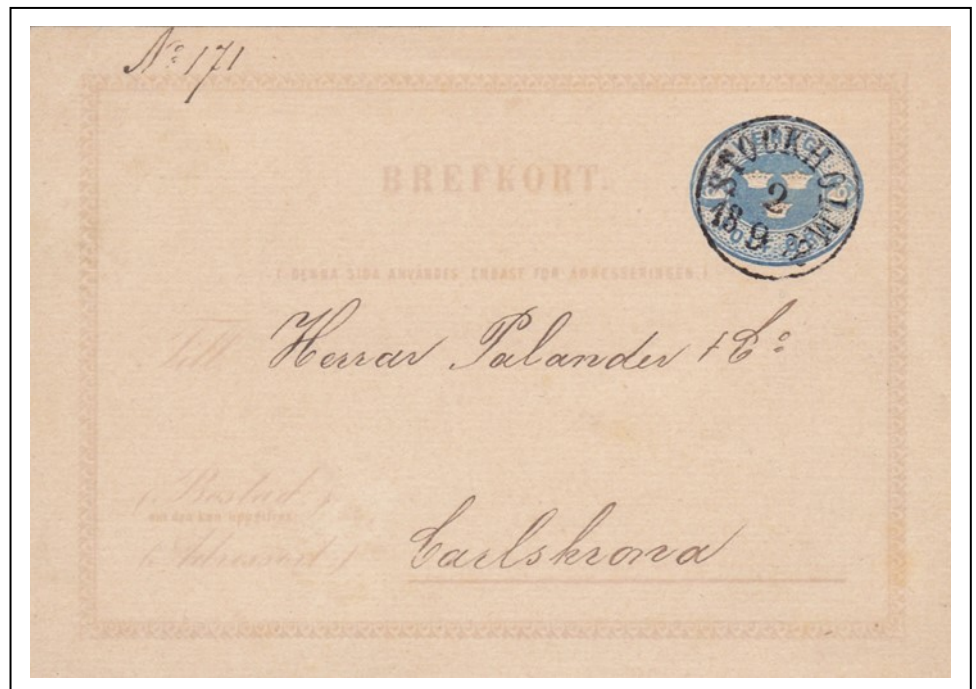 No 171
BREFKORT.
STOCKHOLM
2
18 9
( DENNA SIDA ANVÄNDES ENDAST FÖR ADRESSERINGEN. )
Till Herrar Palander & Co
( Bostad )
om den kan uppgifvas
( Adressort ) Carlskrona